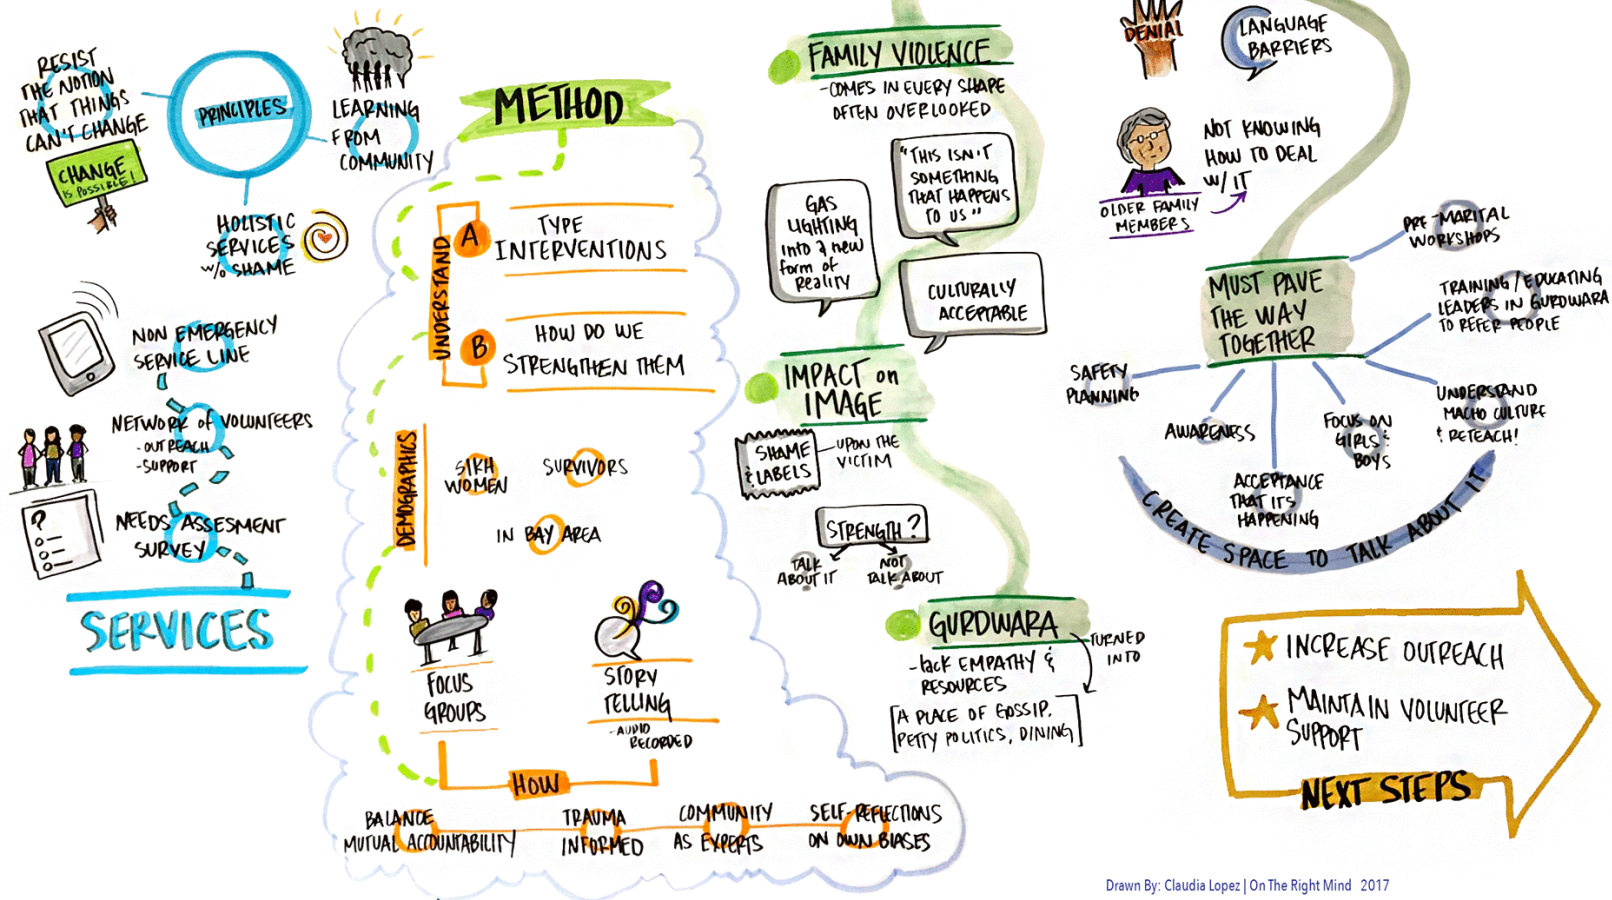 RESIST
THE NOTION
THAT THINGS
CAN'T CHANGE
CHANGE
IS POSSIBLE!
PRINCIPLES
LEARNING
FROM
COMMUNITY
HOLISTIC
SERVICES
w/o SHAME
NON EMERGENCY
SERVICE LINE
NETWORK of VOLUNTEERS
-OUTREACH
-SUPPORT
?
NEEDS ASSESMENT
SURVEY
SERVICES
METHOD
UNDERSTAND
A
TYPE
INTERVENTIONS
B
HOW DO WE
STRENGTHEN THEM
DEMOGRAPHICS
SIKH
WOMEN
SURVIVORS
IN BAY AREA
FOCUS
GROUPS
STORY
TELLING
-AUDIO
RECORDED
HOW
BALANCE
MUTUAL ACCOUNTABILITY
TRAUMA
INFORMED
COMMUNITY
AS EXPERTS
SELF-REFLECTIONS
ON OWN BIASES
FAMILY VIOLENCE
-COMES IN EVERY SHAPE
OFTEN OVERLOOKED
"THIS ISN'T
SOMETHING
THAT HAPPENS
TO US"
GAS
LIGHTING
into a new
form of
Reality
CULTURALLY
ACCEPTABLE
IMPACT on
IMAGE
SHAME
& LABELS
-UPON THE
VICTIM
STRENGTH?
TALK
ABOUT IT
NOT
TALK ABOUT
GURDWARA
-lack EMPATHY &
RESOURCES
TURNED
INTO
[A PLACE OF GOSSIP,
PETTY POLITICS, DINING]
DENIAL
LANGUAGE
BARRIERS
NOT KNOWING
HOW TO DEAL
W/ IT
OLDER FAMILY
MEMBERS
MUST PAVE
THE WAY
TOGETHER
PRE-MARITAL
WORKSHOPS
TRAINING/EDUCATING
LEADERS IN GURDWARA
TO REFER PEOPLE
UNDERSTAND
MACHO CULTURE
& RETEACH!
FOCUS ON
GIRLS &
BOYS
ACCEPTANCE
THAT ITS
HAPPENING
AWARENESS
SAFETY
PLANNING
CREATE SPACE TO TALK ABOUT IT
INCREASE OUTREACH
MAINTAIN VOLUNTEER
SUPPORT
NEXT STEPS
Drawn By: Claudia Lopez | On The Right Mind 2017